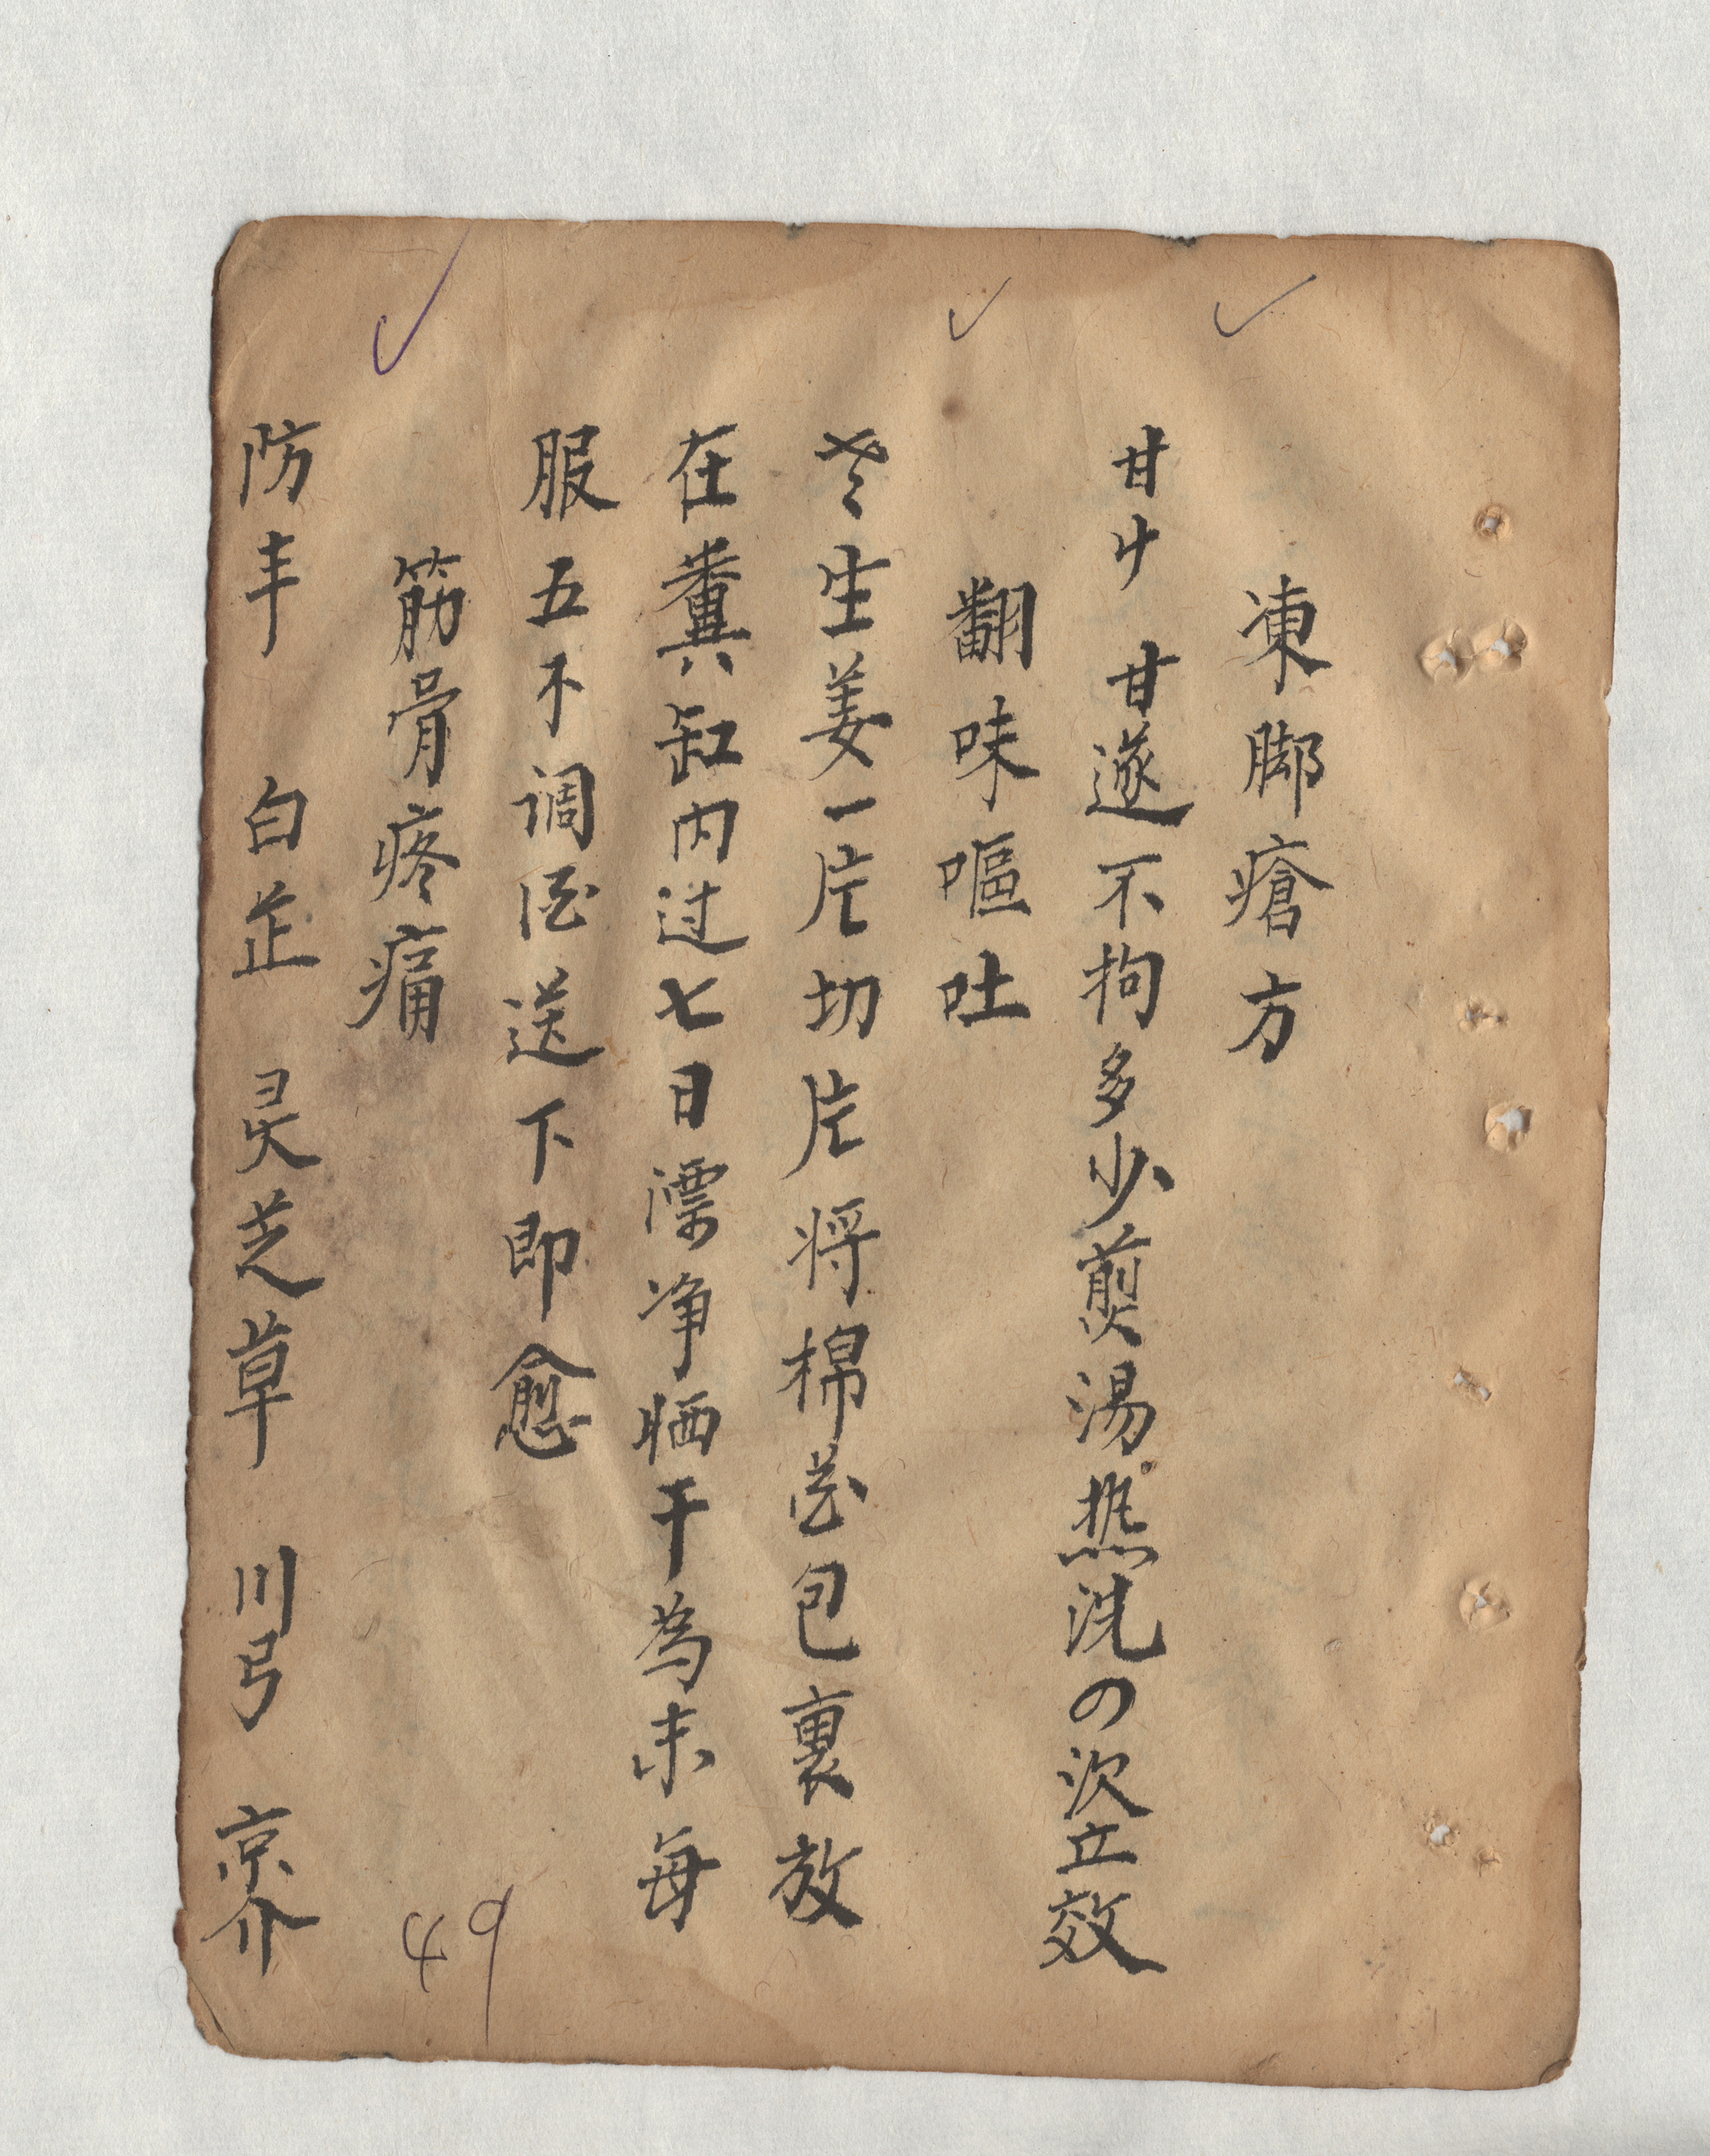 凍脚瘡方
甘廾 甘遂不拘多少煎湯热洗の次立效
翻味嘔吐
生姜一片切片将棉花包裹放
在糞缸内过七日漂净晒干為末每
服五不调酒送下即愈
筋骨疼痛
防丰 白芷 灵芝草 川弓 京介
49